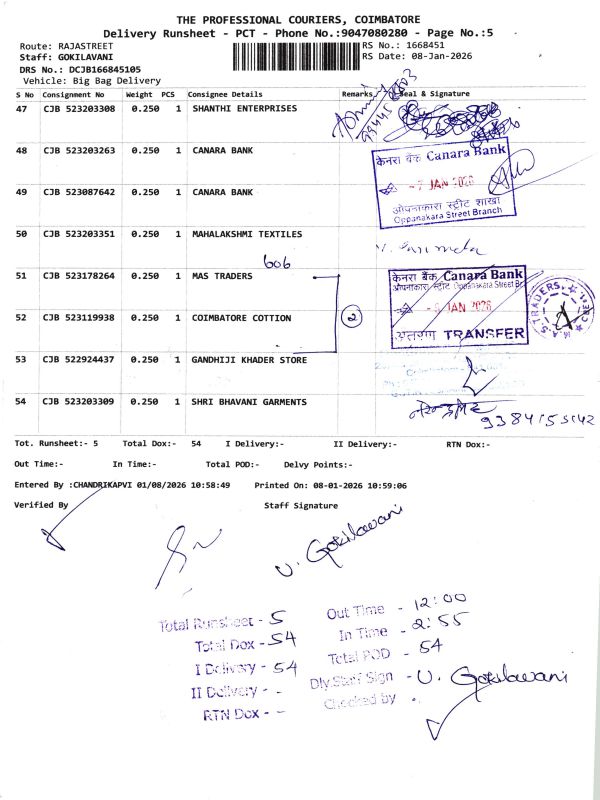 THE PROFESSIONAL COURIERS, COIMBATORE
Delivery Runsheet - PCT - Phone No.:9047080280 - Page No.:5
Route: RAJASTREET
RS No.: 1668451
Staff: GOKILAVANI
RS Date: 08-Jan-2026
DRS No.: DCJB166845105
Vehicle: Big Bag Delivery
S No Consignment No Weight PCS Consignee Details Remarks Seal & Signature
47 CJB 523203308 0.250 1 SHANTHI ENTERPRISES
48 CJB 523203263 0.250 1 CANARA BANK
केनरा बैंक Canara Bank
- 7 JAN 2026
49 CJB 523087642 0.250 1 CANARA BANK
ओपनाकारा स्ट्रीट शाखा
Oppanakara Street Branch
50 CJB 523203351 0.250 1 MAHALAKSHMI TEXTILES
606
51 CJB 523178264 0.250 1 MAS TRADERS
केनरा बैंक Canara Bank
ओपनाकारा स्ट्रीट Oppanakara Street Br
JAN 2026
52 CJB 523119938 0.250 1 COIMBATORE COTTION 2
अंतरण TRANSFER
M.A.S TRADERS
53 CJB 522924437 0.250 1 GANDHIJI KHADER STORE
54 CJB 523203309 0.250 1 SHRI BHAVANI GARMENTS
9384153142
Tot. Runsheet:- 5 Total Dox:- 54 I Delivery:- II Delivery:- RTN Dox:-
Out Time:- In Time:- Total POD:- Delvy Points:-
Entered By :CHANDRIKAPVI 01/08/2026 10:58:49 Printed On: 08-01-2026 10:59:06
Verified By Staff Signature
U. Gokilavani
Total Runsheet - 5
Total Dox - 54
I Delivery - 54
II Delivery - -
RTN Dox - -
Out Time - 12:00
In Time - 2:55
Total POD - 54
Dly.Staff Sign - U. Gokilavani
Checked By .